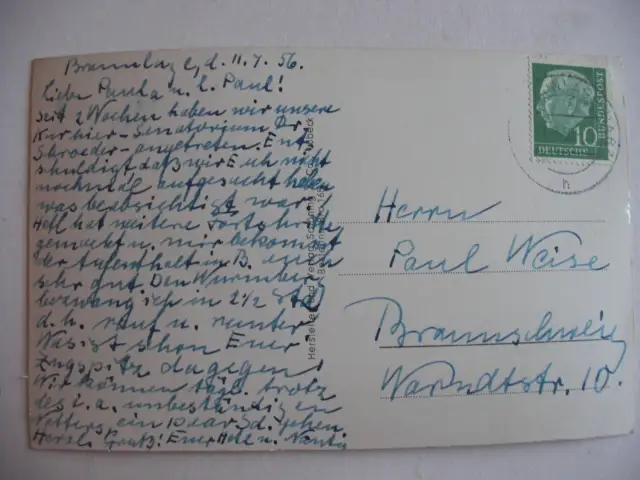 Braunlage, d. 11.7.56.
Liebe Paula u. l. Paul!
Seit 2 Wochen haben wir unsere
Kur hier - Senatorium Dr
Schroeder - angetreten. Ent
schuldigt daß wir Euch nicht
nochmal aufgesucht haben
was beabsichtigt war.
hat weitere Fortschritte
gemacht u. mir bekommt
der Aufenthalt in B. auch
sehr gut. Den Wurmberg
bezwang ich in 2 1/2 Std
d. h. rauf u. runter
Was ist schon Euer
Zugspitz dagegen!
Wir können tägl. trotz
des z. a. unbeständigen
Wetters, ein paar Std. gehen
Herzl. Gruß! Euer u.
Herrn
Paul Weise
Braunschweig
Warndtstr. 10.
10
DEUTSCHE
BUNDESPOST
Hersteller und Verlag